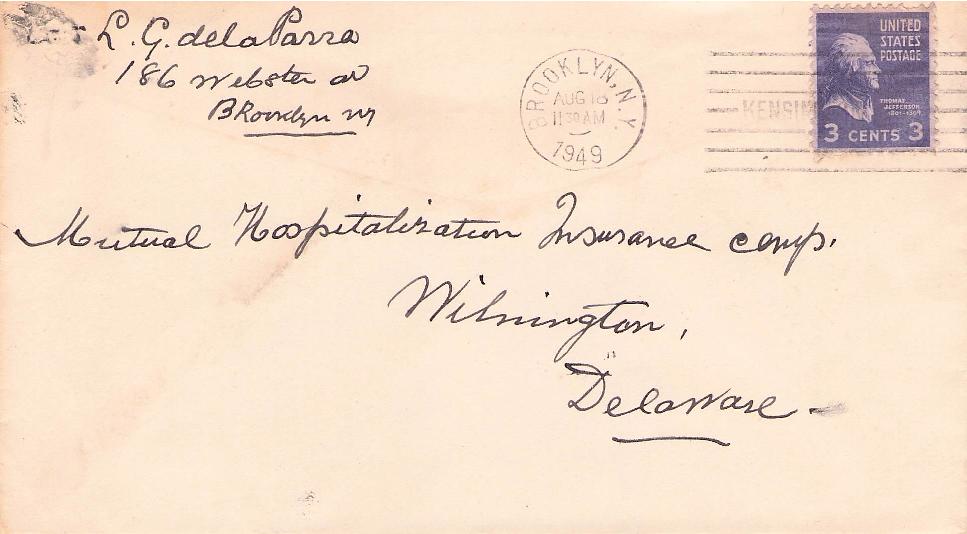 L. G. dela Parra
186 Webster av
Brooklyn NY
BROOKLYN, N.Y.
AUG 18
11 30 AM
1949
UNITED
STATES
POSTAGE
THOMAS
JEFFERSON
1801-1809
3 CENTS 3
Mutual Hospitalization Insurance comp.
Wilmington,
Delaware